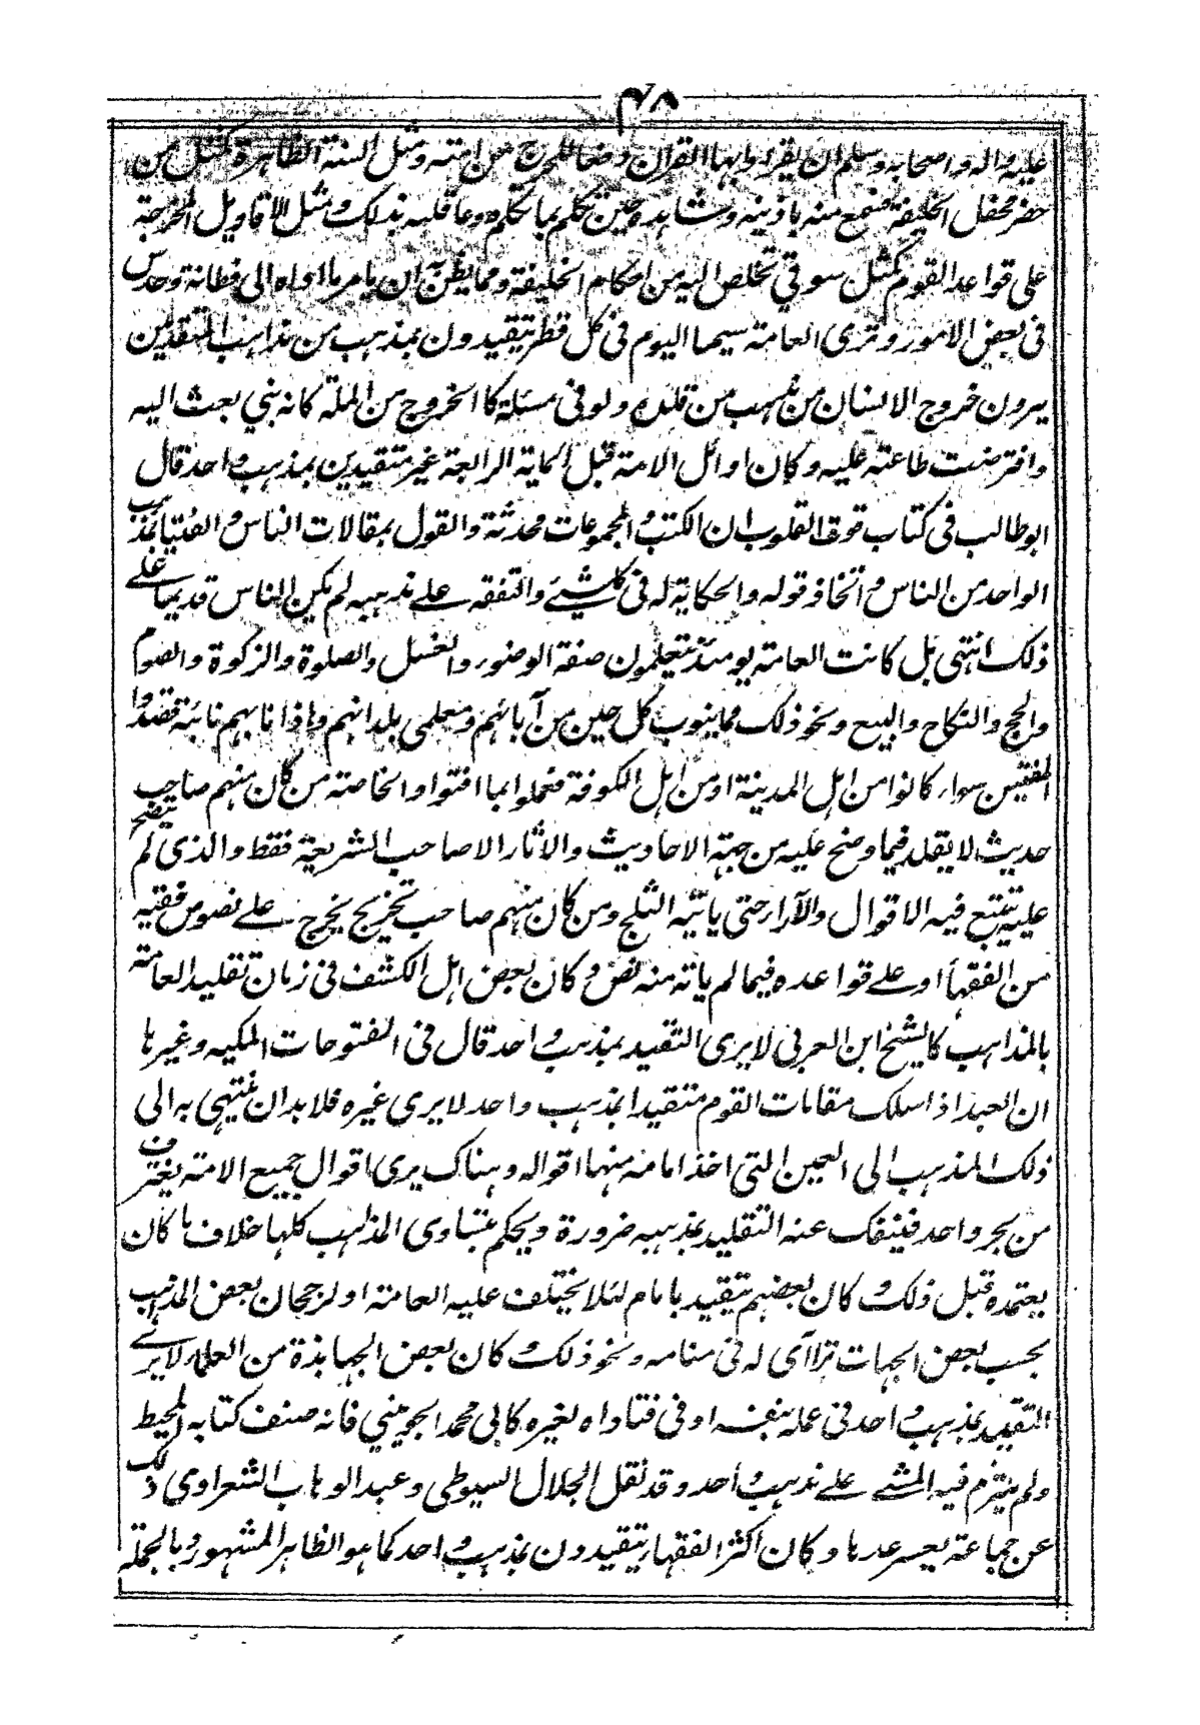 ٣٨
عليه واله واصحابه وسلم ان يقرءوا بها القران وضعا للحرج عن امته ومثل السنة الظاهرة كمثل من
حضر محفل الخليفة فسمع منه باذنيه وشاهده حين تكلم بما تكلم ووعا قلبه بذلك ومثل الاقاويل المخرجة
على قواعد القوم كمثل سوقي تخلص اليه من احكام الخليفة ومما يظن ان يامر بما اواه الى فطانة وحدس
فى بعض الامور وترى العامة سيما اليوم فى كل قطر يتقيدون بمذهب من مذاهب المتقدمين
يرون خروج الانسان من مذهب من قلده ولو فى مسئلة كالخروج من الملة كانه نبي بعث اليه
وافترضت طاعته عليه وكان اوائل الامة قبل المأية الرابعة غير متقيدين بمذهب واحد قال
ابو طالب فى كتاب قوة القلوب ان الكتب والمجموعات محدثة والقول بمقالات الناس والفتيا بمذهب
الواحد من الناس واتخاذ قوله والحكاية له فى كل شيئ والتفقه على مذهبه لم يكن الناس قديما على
ذلك انتهى بل كانت العامة يومئذ يتعلمون صفة الوضوء والغسل والصلوة والزكوة والصوم
والحج والنكاح والبيع ونحو ذلك مما ينوب كل حين من آبائهم ومعلمى بلدانهم واذا نابهم نائبة قصدوا
المفتيين سواء كانوا من اهل المدينة او من اهل الكوفة فعملوا بما افتوا والخاصة من كان منهم صاحب
حديث لا يقلد فيما وضح عليه من جهة الاحاديث والآثار الا صاحب الشريعة فقط والذى لم يتضح
عليه يتتبع فيه الاقوال والآراء حتى ياتيه الثلج ومن كان منهم صاحب تخريج يخرج على نصوص فقيه
من الفقهاء او على قواعده فيما لم ياته منه نص وكان بعض اهل الكشف فى زمان تقليد العامة
بالمذاهب كالشيخ ابن العربي لا يرى التقيد بمذهب واحد قال فى الفتوحات المكيه وغيرها
ان العبد اذا سلك مقامات القوم متقيدا بمذهب واحد لا يرى غيره فلا بد ان ينتهى به الى
ذلك المذهب الى العين التى اخذ امامه منها اقواله وهناك يرى اقوال جميع الامة يغترف
من بحر واحد فينفك عنه التقليد بمذهبه ضرورة ويحكم بتساوى المذاهب كلها خلاف ما كان
يعتمده قبل ذلك وكان بعضهم يتقيد بامام لئلا يختلف عليه العامة او لرجحان بعض المذاهب
بحسب بعض الجهات تراآى له فى منامه ونحو ذلك وكان بعض الجهابذة من العلماء لا يرى
التقيد بمذهب واحد فى عمله بنفسه او فى فتاواه لغيره كابى محمد الجوينى فانه صنف كتابه المحيط
ولم يلتزم فيه المشى على مذهب واحد وقد نقل الجلال السيوطى وعبد الوهاب الشعراوى ذلك
عن جماعة يعسر عدها وكان اكثر الفقهاء يتقيدون بمذهب واحد كما هو الظاهر المشهور وبالجملة